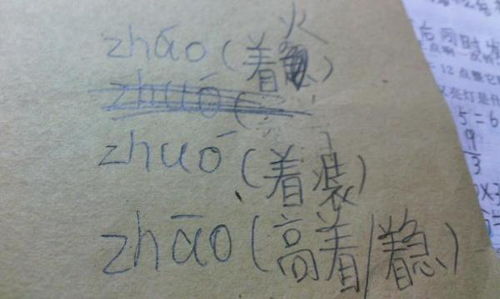 zháo(着火)
zhuó(
zhuó(着装)
zhāo(高着/着急)
5=6
9
3